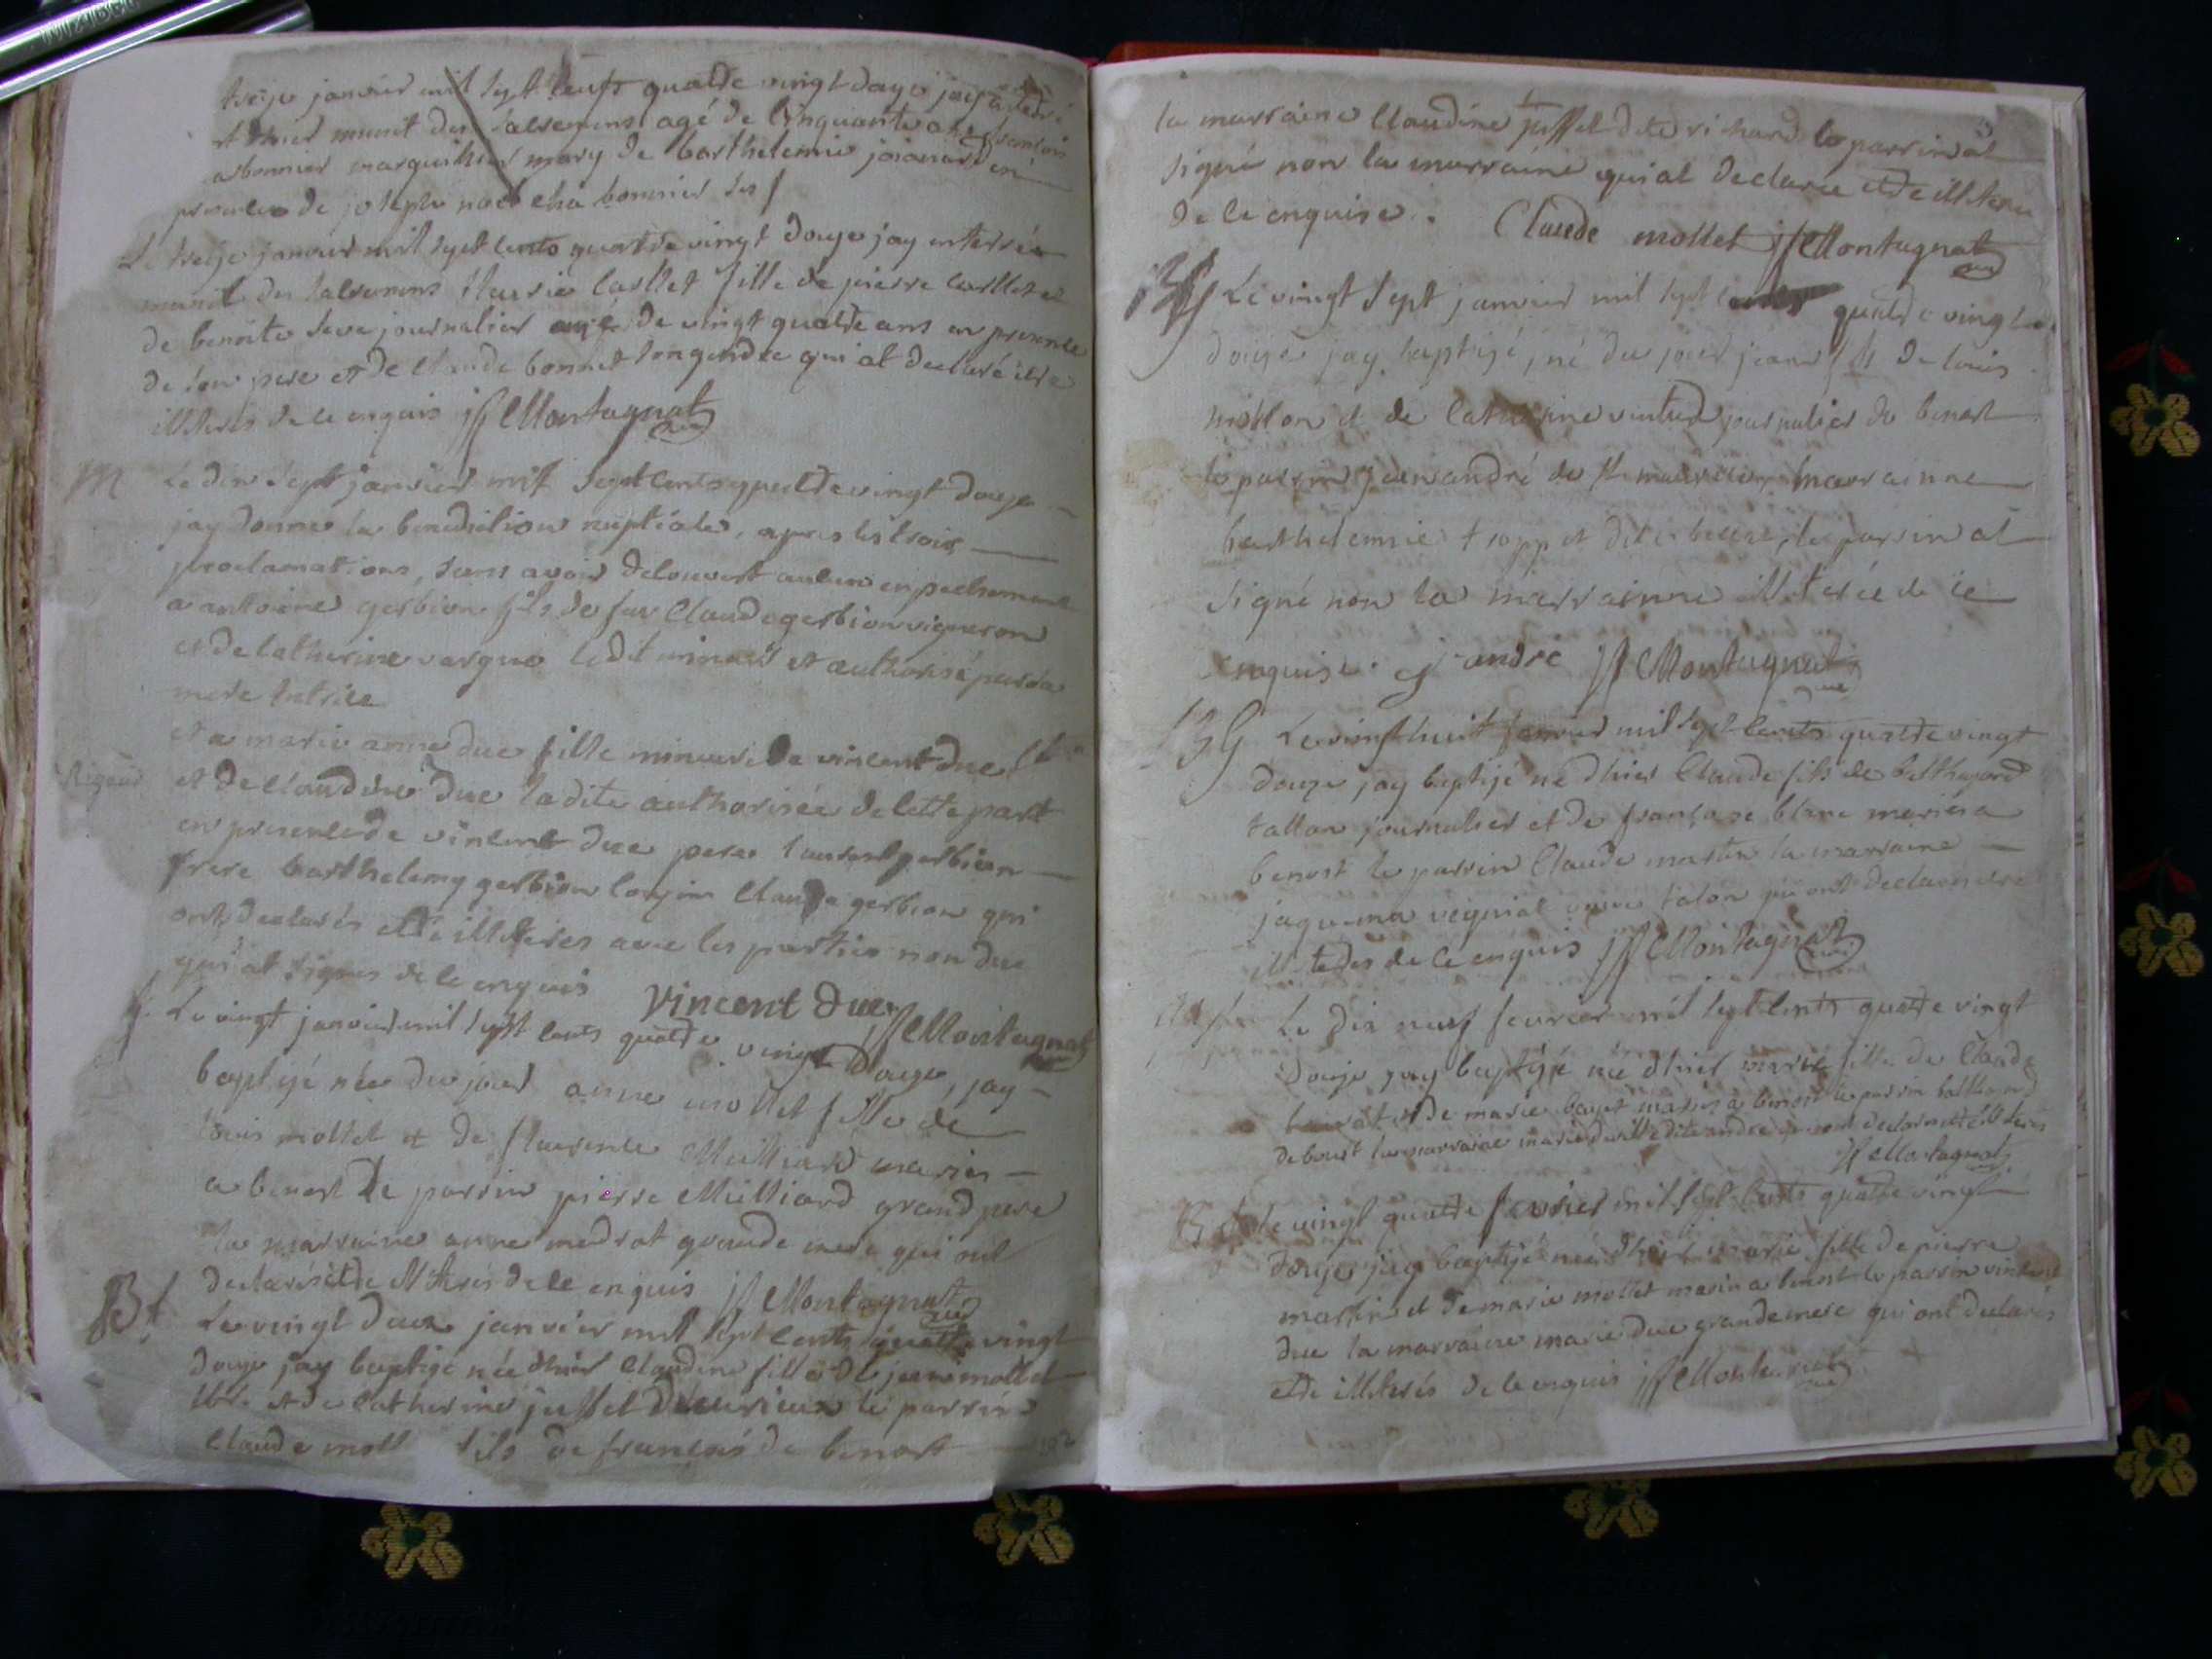 treize janvier mil sept cents quatre vingt douze jay enterré
et hier munit des sacremens agé de cinquante ans francois
arbonnier marguiliier mary de barthelemie joanard en
presence de joseph noel charbonnier ses f
Le treize janvier mil sept cents quatre vingt douze jay enterrée
munit des sacremens Marie Carllet fille de pierre carllet et
de benoite seve journalier agé de vingt quatre ans en presence
de son pere et de Claude bonnet son gendre qui at declaré etre
illiterés de ce enquis jf Montagnat curé
M Le dix sept janvier mil sept cents quatre vingt douze
jay donné la benediction nuptiale, apres les trois
proclamations, sans avoir decouvert aucun enpechement
a antoine gerbion fils de feu Claude gerbion vigneron
et de catherine vergne ledit mineur et authorisé par sa
mere tutrice
et a marie anne duc fille mineure de vincent duc
et de Claudine duc ladite authorisée de cette part
en presence de vincent duc pere laurent gerbion
frere barthelemy gerbion cousin Claude gerbion qui
ont declarés etre illiterés avec les parties non duc
qui at signés de ce enquis Vincent Duc
jf Montagnat
Le vingt janvier mil sept cents quatre vingt douze, jay
baptisé née du jour anne mollet fille de
louis mollet et de flaurence Milliard mariés
a benost Le parrin pierre Milliard grand pere
la marraine anne medrat grande mere qui ont
declarés etre illiterés de ce enquis jf Montagnat curé
Bf Le vingt deux janvier mil sept cents quatre vingt
douze jay baptisé née d'hier Claudine fille de jean mollet
et de catherine juffet le parrin
Claude moll fils de francois de benost
la marraine Claudine juffet dite richard le parrin at
signé non la marraine qui at declarée etre illiterée
de ce enquise. Claude mollet jf Montagnat curé
BG Le vingt sept janvier mil sept cents quatre vingt
douze jay baptisé, né du jour jean fils de louis
mollon et de Catherine ventur journalier de benost
le parrin jean andré de st maurice, marrainne
barthelemie troppet dite, le parrin at
signé non la marrainne illiterée de ce
enquise. j andré jf Montagnat curé
BG Le vingt huit janvier mil sept cents quatre vingt
douze jay baptisé né d'hier Claude fils de balthazard
tallon journalier et de francoise blanc mariés a
benost le parrin Claude martin la marraine
jaquema veigniat talon qui ont declarés etre
illiterés de ce enquis jf Montagnat curé
Le dix neuf fevrier mil sept cents quatre vingt
douze jay baptisé née d'hier marie fille de Claude
et de marie bayet mariés a benost le parrin balthazard
debourt la marraine marie dite andré qui ont declarés etre illiterés
jf Montagnat
Bf Le vingt quatre fevrier mil sept cents quatre vingt
douze jay baptisé née d'hier marie fille de pierre
martin et de marie mollet mariés a benost le parrin vincent
duc la marraine marie duc grande mere qui ont declarés
etre illiterés de ce enquis jf Montagnat curé